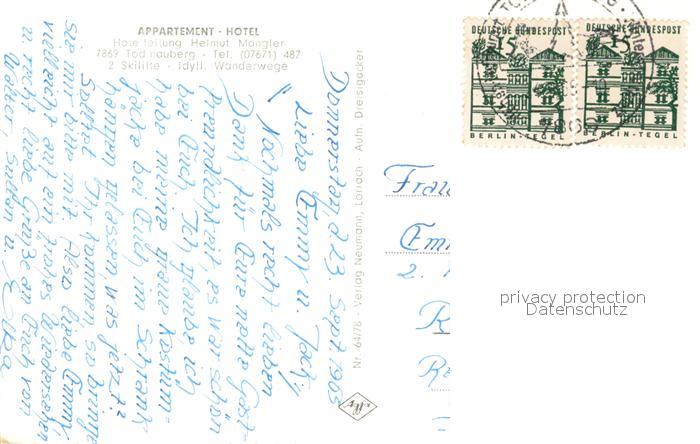 APPARTEMENT - HOTEL
Hotelleitung Helmut Mangler
7869 Todtnauberg - Tel. (07671) 487
2 Skilifte - Idyll. Wanderwege
Donnerstag d. 23. Sept. 1965
Liebe Emmy u. Jocky,
Nochmals recht lieben
Dank für Eure nette Gast-
freundlichkeit, es war schön
bei Euch. Ich glaube ich
habe meine graue Kostüm-
jacke bei Euch im Schrank
hängen gelassen, was jetzt?
Solltet Ihr kommen so bringe
sie mir bitte mit. Also liebe Emmy
vielleicht auf ein frohes Wiedersehen
u. recht liebe Grüße an Euch von
Walter, u. Elka
Nr. 64/78 - Verlag Neumann, Lörrach - Aufn. Dreisigacker
Agfa
DEUTSCHE BUNDESPOST
15
BERLIN-TEGEL
DEUTSCHE BUNDESPOST
15
BERLIN-TEGEL
Frau
Em
2.
privacy protection
Datenschutz